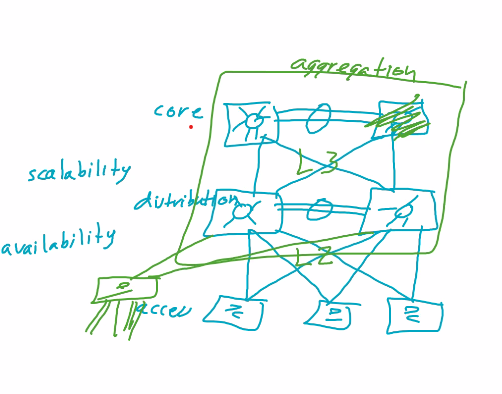 aggregation
core
L3
scalability
distribution
availability
L2
acces